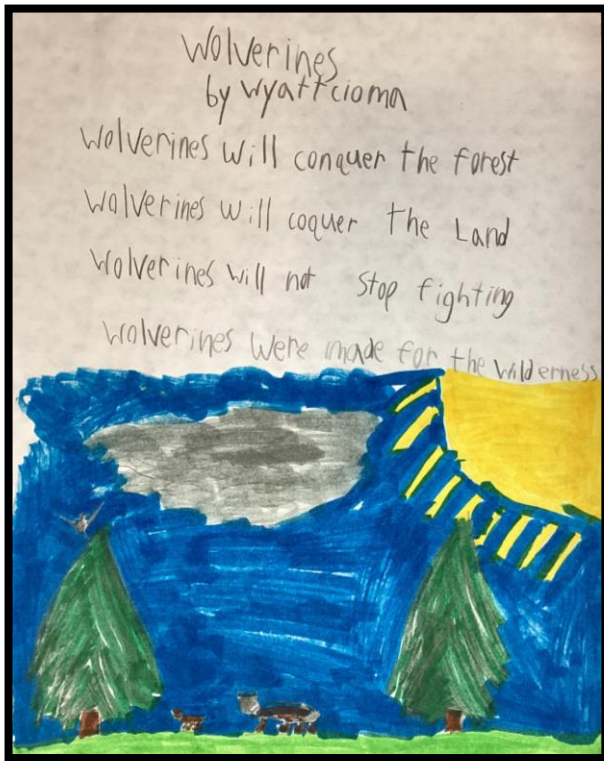 Wolverines
by Wyatt cioma
Wolverines Will conquer the forest
Wolverines Will coquer the Land
Wolverines Will not stop fighting
Wolverines Were made for the Wilderness